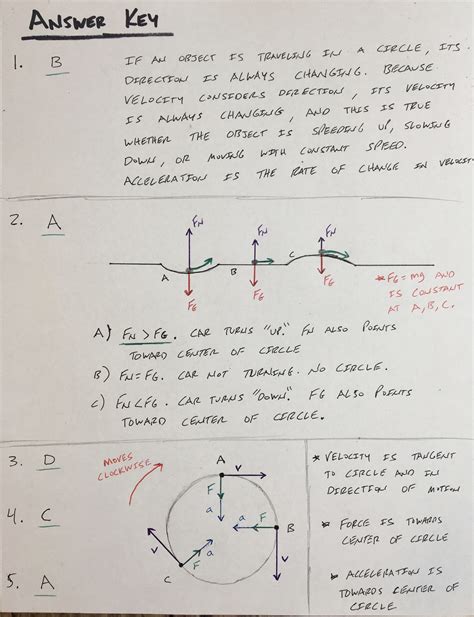 ANSWER KEY
1. B
IF AN OBJECT IS TRAVELING IN A CIRCLE, ITS
DIRECTION IS ALWAYS CHANGING. BECAUSE
VELOCITY CONSIDERS DIRECTION, ITS VELOCITY
IS ALWAYS CHANGING, AND THIS IS TRUE
WHETHER THE OBJECT IS SPEEDING UP, SLOWING
DOWN, OR MOVING WITH CONSTANT SPEED.
ACCELERATION IS THE RATE OF CHANGE IN VELOCITY.
2. A
FN
FN
FN
A
B
C
FG
FG
FG
*FG = mg AND
IS CONSTANT
AT A, B, C.
A) FN > FG. CAR TURNS "UP." FN ALSO POINTS
TOWARD CENTER OF CIRCLE
B) FN = FG. CAR NOT TURNING. NO CIRCLE.
C) FN < FG. CAR TURNS "DOWN". FG ALSO POINTS
TOWARD CENTER OF CIRCLE.
3. D
MOVES
CLOCKWISE
A
V
F
a
a
F
B
V
F
a
V
C
* VELOCITY IS TANGENT
TO CIRCLE AND IN
DIRECTION OF MOTION
4. C
* FORCE IS TOWARDS
CENTER OF CIRCLE
5. A
* ACCELERATION IS
TOWARDS CENTER OF
CIRCLE